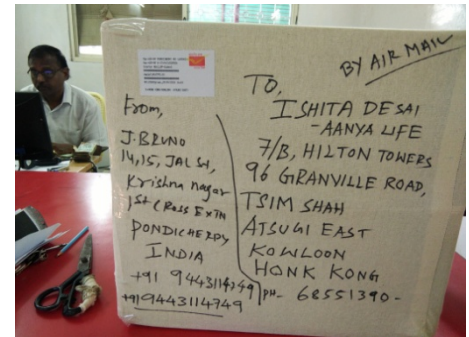 BY AIR MAIL
From,
J. BRUNO
14,15, JAL SH,
Krishna nagar
1st CROSS EXTN
PONDICHERRY
INDIA
+91 9443114749
+91 9443114749
TO,
ISHITA DESAI
- AANYA LIFE
7/B, HILTON TOWERS
96 GRANVILLE ROAD,
TSIM SHAH
ATSUGI EAST
KOWLOON
HONK KONG
PH- 68551390-